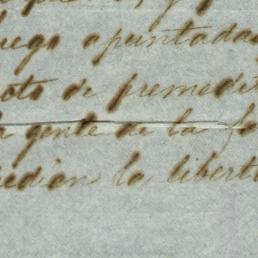 luego apuntada
cto de premedit
a gente de la fe
edian la libert